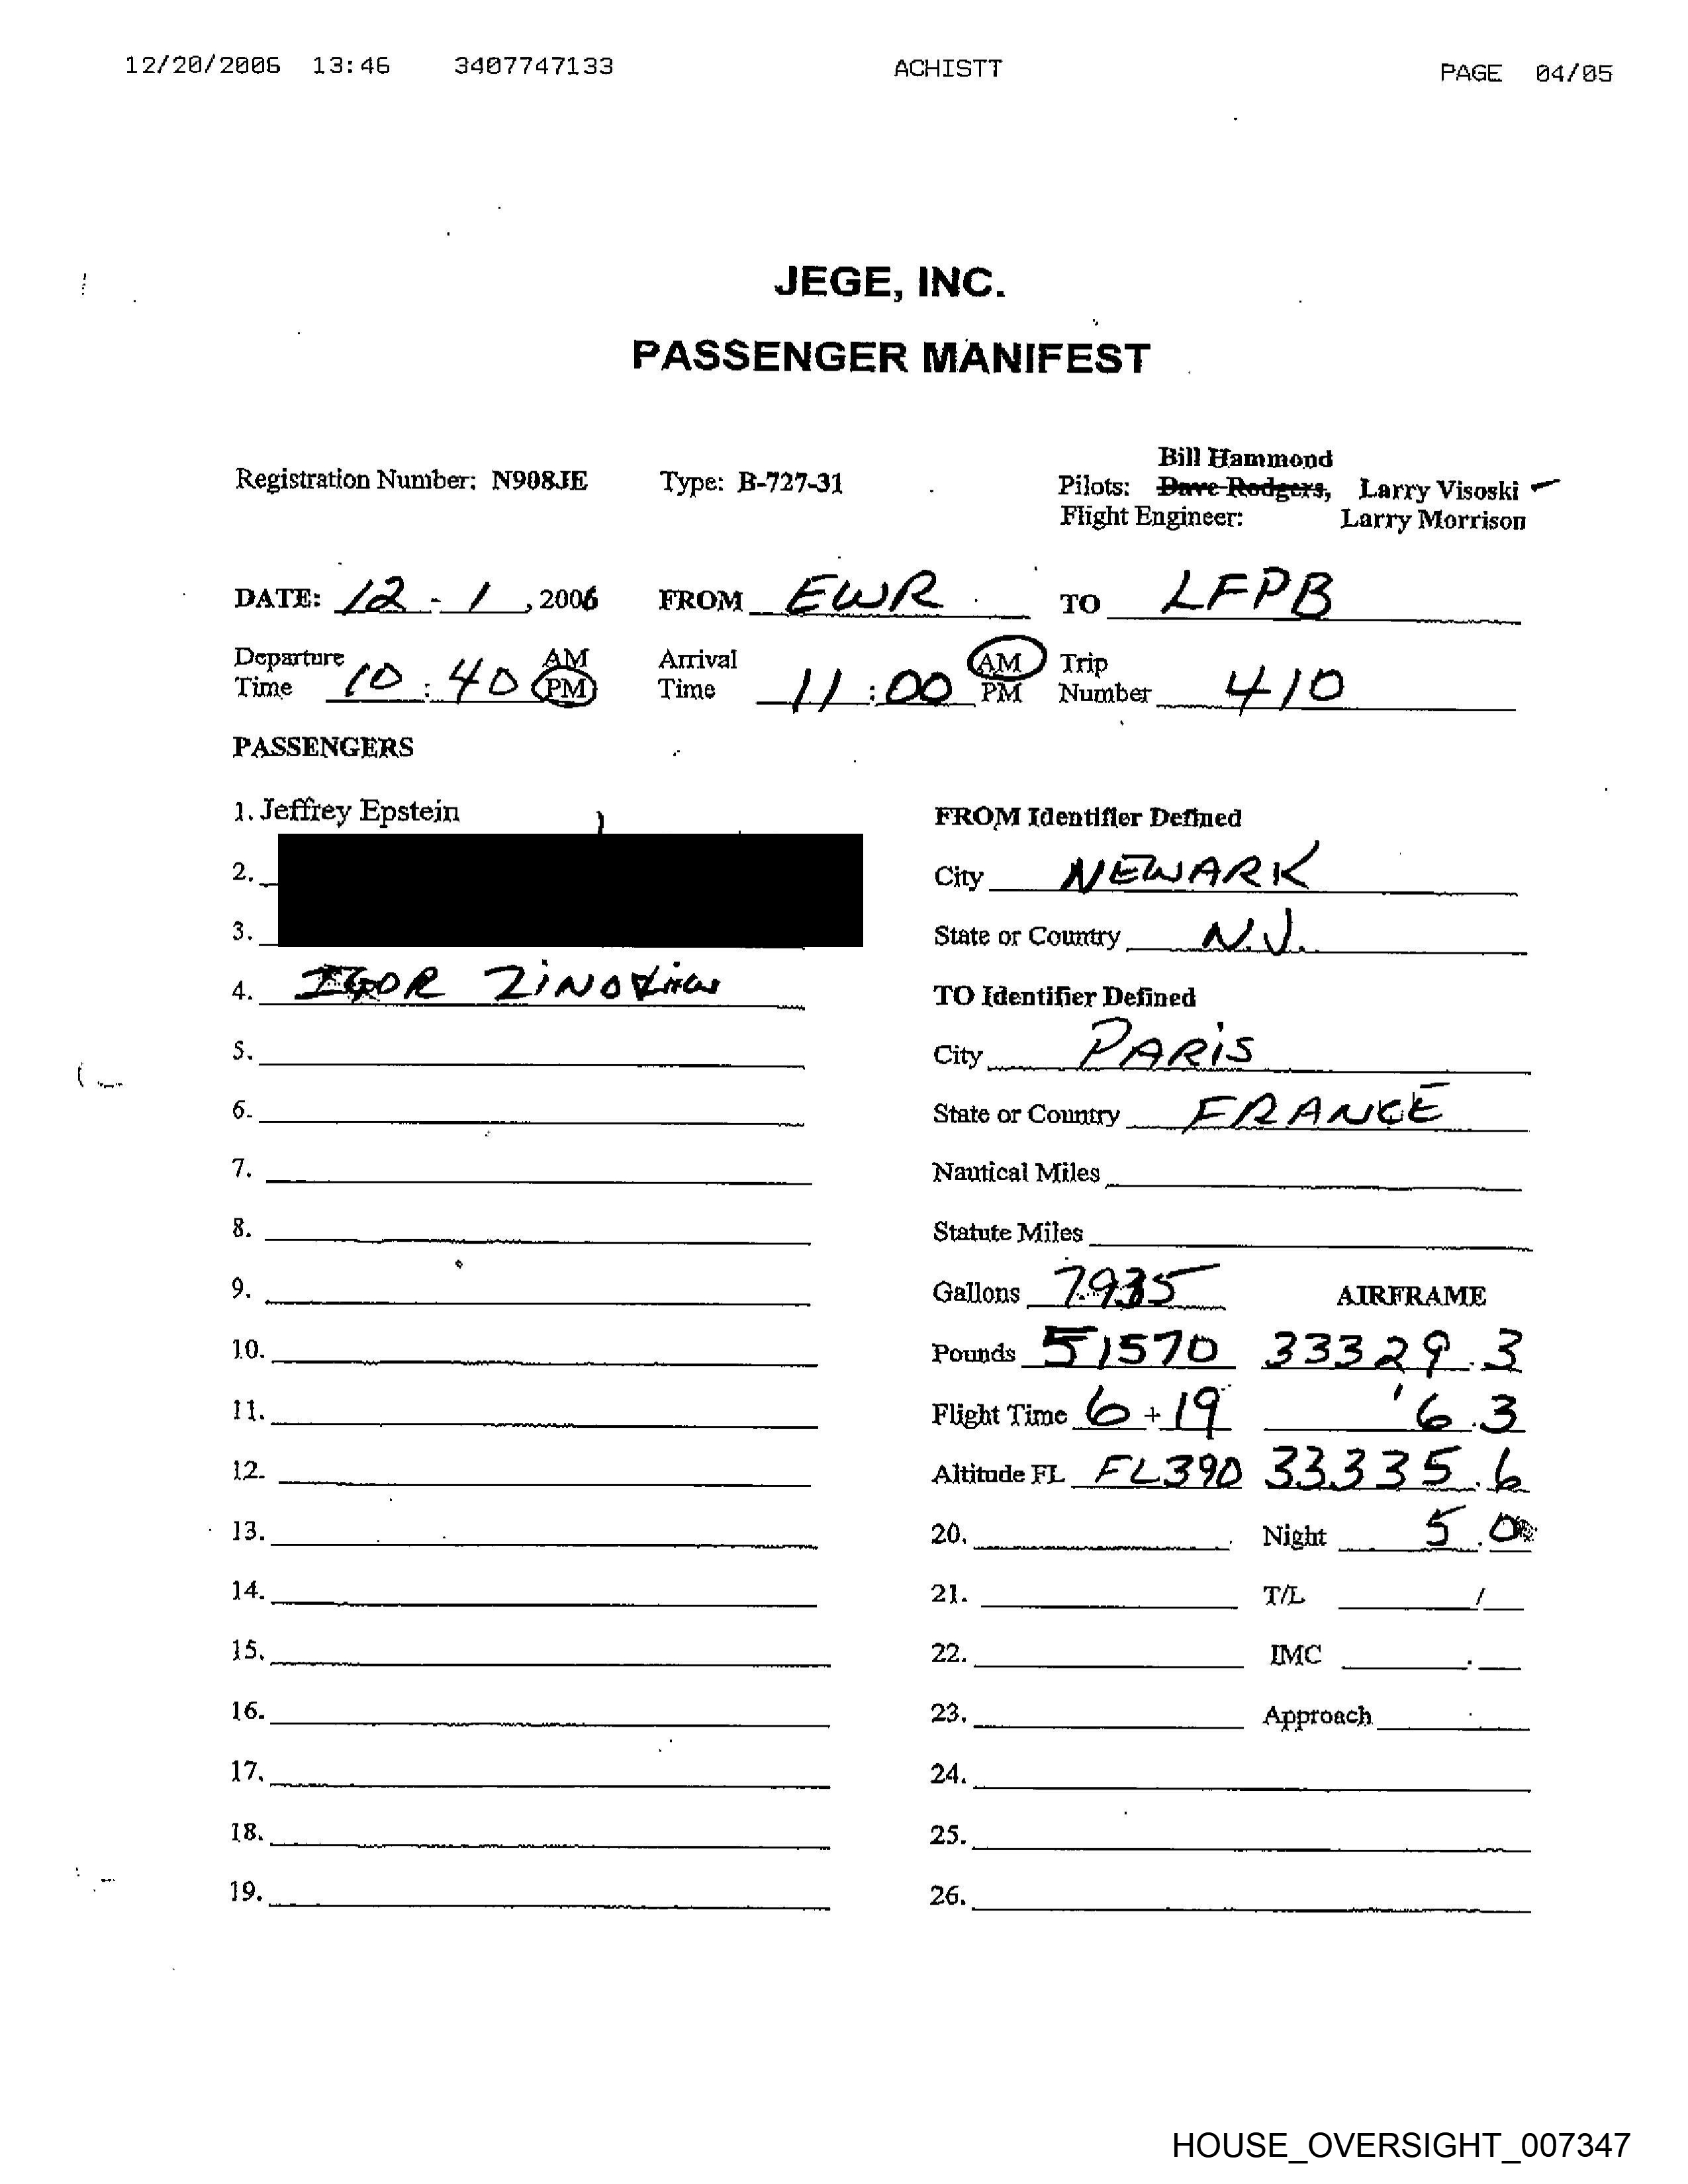 12/20/2006 13:46 3407747133 ACHISTT PAGE 04/05
JEGE, INC.
PASSENGER MANIFEST
Bill Hammond
Registration Number: N908JE Type: B-727-31 Pilots: Dave Rodgers, Larry Visoski
Flight Engineer: Larry Morrison
DATE: 12 - 1, 2006 FROM EWR TO LFPB
Departure Time 10:40 AM PM Arrival Time 11:00 AM PM Trip Number 410
PASSENGERS
1. Jeffrey Epstein
2.
3.
4. IGOR
5.
6.
7.
8.
9.
10.
11.
12.
13.
14.
15.
16.
17.
18.
19.
FROM Identifier Defined
City NEWARK
State or Country N.J.
TO Identifier Defined
City PARIS
State or Country FRANCE
Nautical Miles
Statute Miles
Gallons 7935 AIRFRAME
Pounds 51570 33329.3
Flight Time 6+19 6.3
Altitude FL FL390 33335.6
20. Night 5.0
21. T/L /
22. IMC .
23. Approach
24.
25.
26.
HOUSE_OVERSIGHT_007347